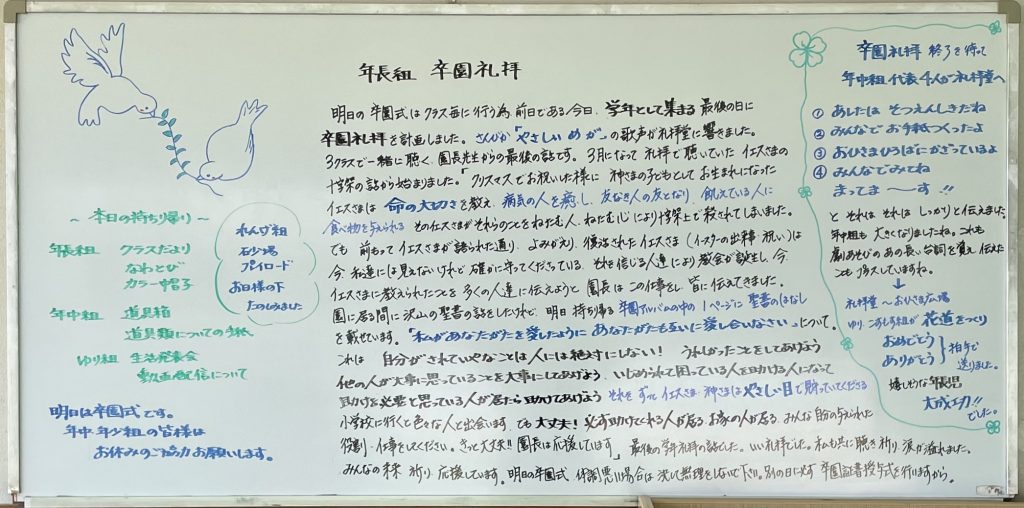 年長組 卒園礼拝
明日の卒園式はクラス毎に行う為、前日である今日、学年として集まる最後の日に
卒園礼拝を計画しました。さんびか「やさしいめが」の歌声が礼拝堂に響きました。
3クラスで一緒に聴く、園長先生からの最後の話です。3月になって礼拝で聴いていたイエスさまの
十字架の話から始まりました。「クリスマスでお祝いした様に 神さまの子どもとしてお生まれになった
イエスさまは 命の大切さを教え、病気の人を癒し、友なき人の友となり、飢えている人に
食べ物を与えられる そのイエスさまがそれらのことをねたむ人、ねたむ心により十字架上で殺されてしまいました。
でも 前もってイエスさまが語られた通り、よみがえり、復活されたイエスさま(イースターの出来事・祝い)は
今、私達には見えないけれど確かに守ってくださっている、それを信じる人達により教会が誕生し、今、
イエスさまに教えられたことを多くの人達に伝えようと園長はこの仕事をし、皆に伝えてきました。
園に居る間に沢山の聖書の話をしたけれど、明日持ち帰る卒園アルバムの中の1ページに聖書のはなし
を載せています。「私があなたがたを愛したように あなたがたも互いに愛し合いなさい」について。
これは 自分がされていやなことは人には絶対にしない! うれしかったことをしてあげよう
他の人が大事に思っていることを大事にしてあげよう、いじめられて困っている人を助ける人になって
助けを必要と思っている人が居たら助けてあげよう それをずっとイエスさま、神さまはやさしい目で見ていてくださる
小学校に行くと色々な人と出会います。でも大丈夫! 必ず助けてくれる人が居る お家の人が居る、みんな自分の与えられた
役割・仕事をしてください。きっと大丈夫!! 園長は応援しています」 最後の学年礼拝の話でした。いい礼拝でした。私も共に聴き祈り涙が溢れました。
みんなの未来 祈り 応援しています。明日の卒園式 体調悪い場合は決して無理をしないで下さい。別の日に必ず卒園証書授与式を行いますから。
～ 本日の持ち帰り ～
年長組 クラスだより
なわとび
カラー帽子
年中組 道具箱
道具類についての手紙
ゆり組 生活発表会
動画配信について
れんげ組
砂場
プレイロード
お日様の下
たのしみました
明日は卒園式です。
年中・年少組の皆様は
お休みのご協力お願いします。
卒園礼拝 終了を待って
年中組代表4人が礼拝堂へ
① あしたは そつえんしきだね
② みんなで お手紙つくったよ
③ おひさまひろばにかざっているよ
④ みんなでみてね
まってま～す!!
と それぞれ しっかりと伝えました。
年中組も 大きくなりましたね。これも
劇あそびのあの長い台詞を覚え伝えた
ことも プラスしていますね。
↓
礼拝堂～おひさま広場
ゆり、こすもす組が 花道をつくり
おめでとう
ありがとう
拍手で
送りました。
嬉しそうな年長児
大成功!!
でした。